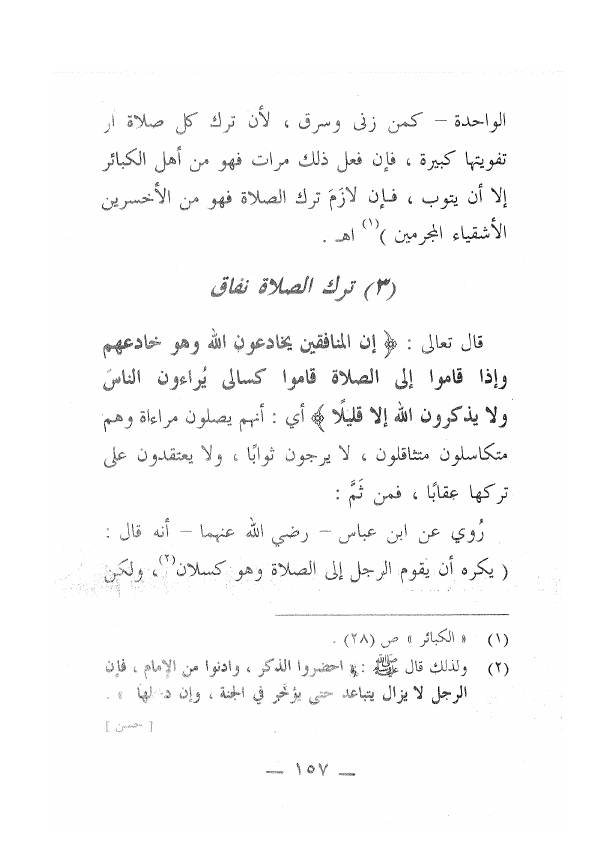 الواحدة – كمن زنى وسرق ، لأن ترك كل صلاة أو
تفويتها كبيرة ، فإن فعل ذلك مرات فهو من أهل الكبائر
إلا أن يتوب ، فإن لازَمَ ترك الصلاة فهو من الأخسرين
الأشقياء المجرمين )(١) اهـ .
(٣) ترك الصلاة نفاق
قال تعالى : ﴿ إن المنافقين يخادعون الله وهو خادعهم
وإذا قاموا إلى الصلاة قاموا كسالى يُراءون الناسَ
ولا يذكرون الله إلا قليلًا ﴾ أي : أنهم يصلون مراءاة وهم
متكاسلون متثاقلون ، لا يرجون ثوابًا ، ولا يعتقدون على
تركها عقابًا ، فمن ثَمَّ :
رُوي عن ابن عباس – رضي الله عنهما – أنه قال :
( يكره أن يقوم الرجل إلى الصلاة وهو كسلان(٢)، ولكن
(١) « الكبائر » ص (٢٨) .
(٢) ولذلك قال ﷺ : « احضروا الذكر ، وادنوا من الإمام ، فإن
الرجل لا يزال يتباعد حتى يؤخَّر في الجنة ، وإن دخلها » .
[ حسن ]
— ١٥٧ —